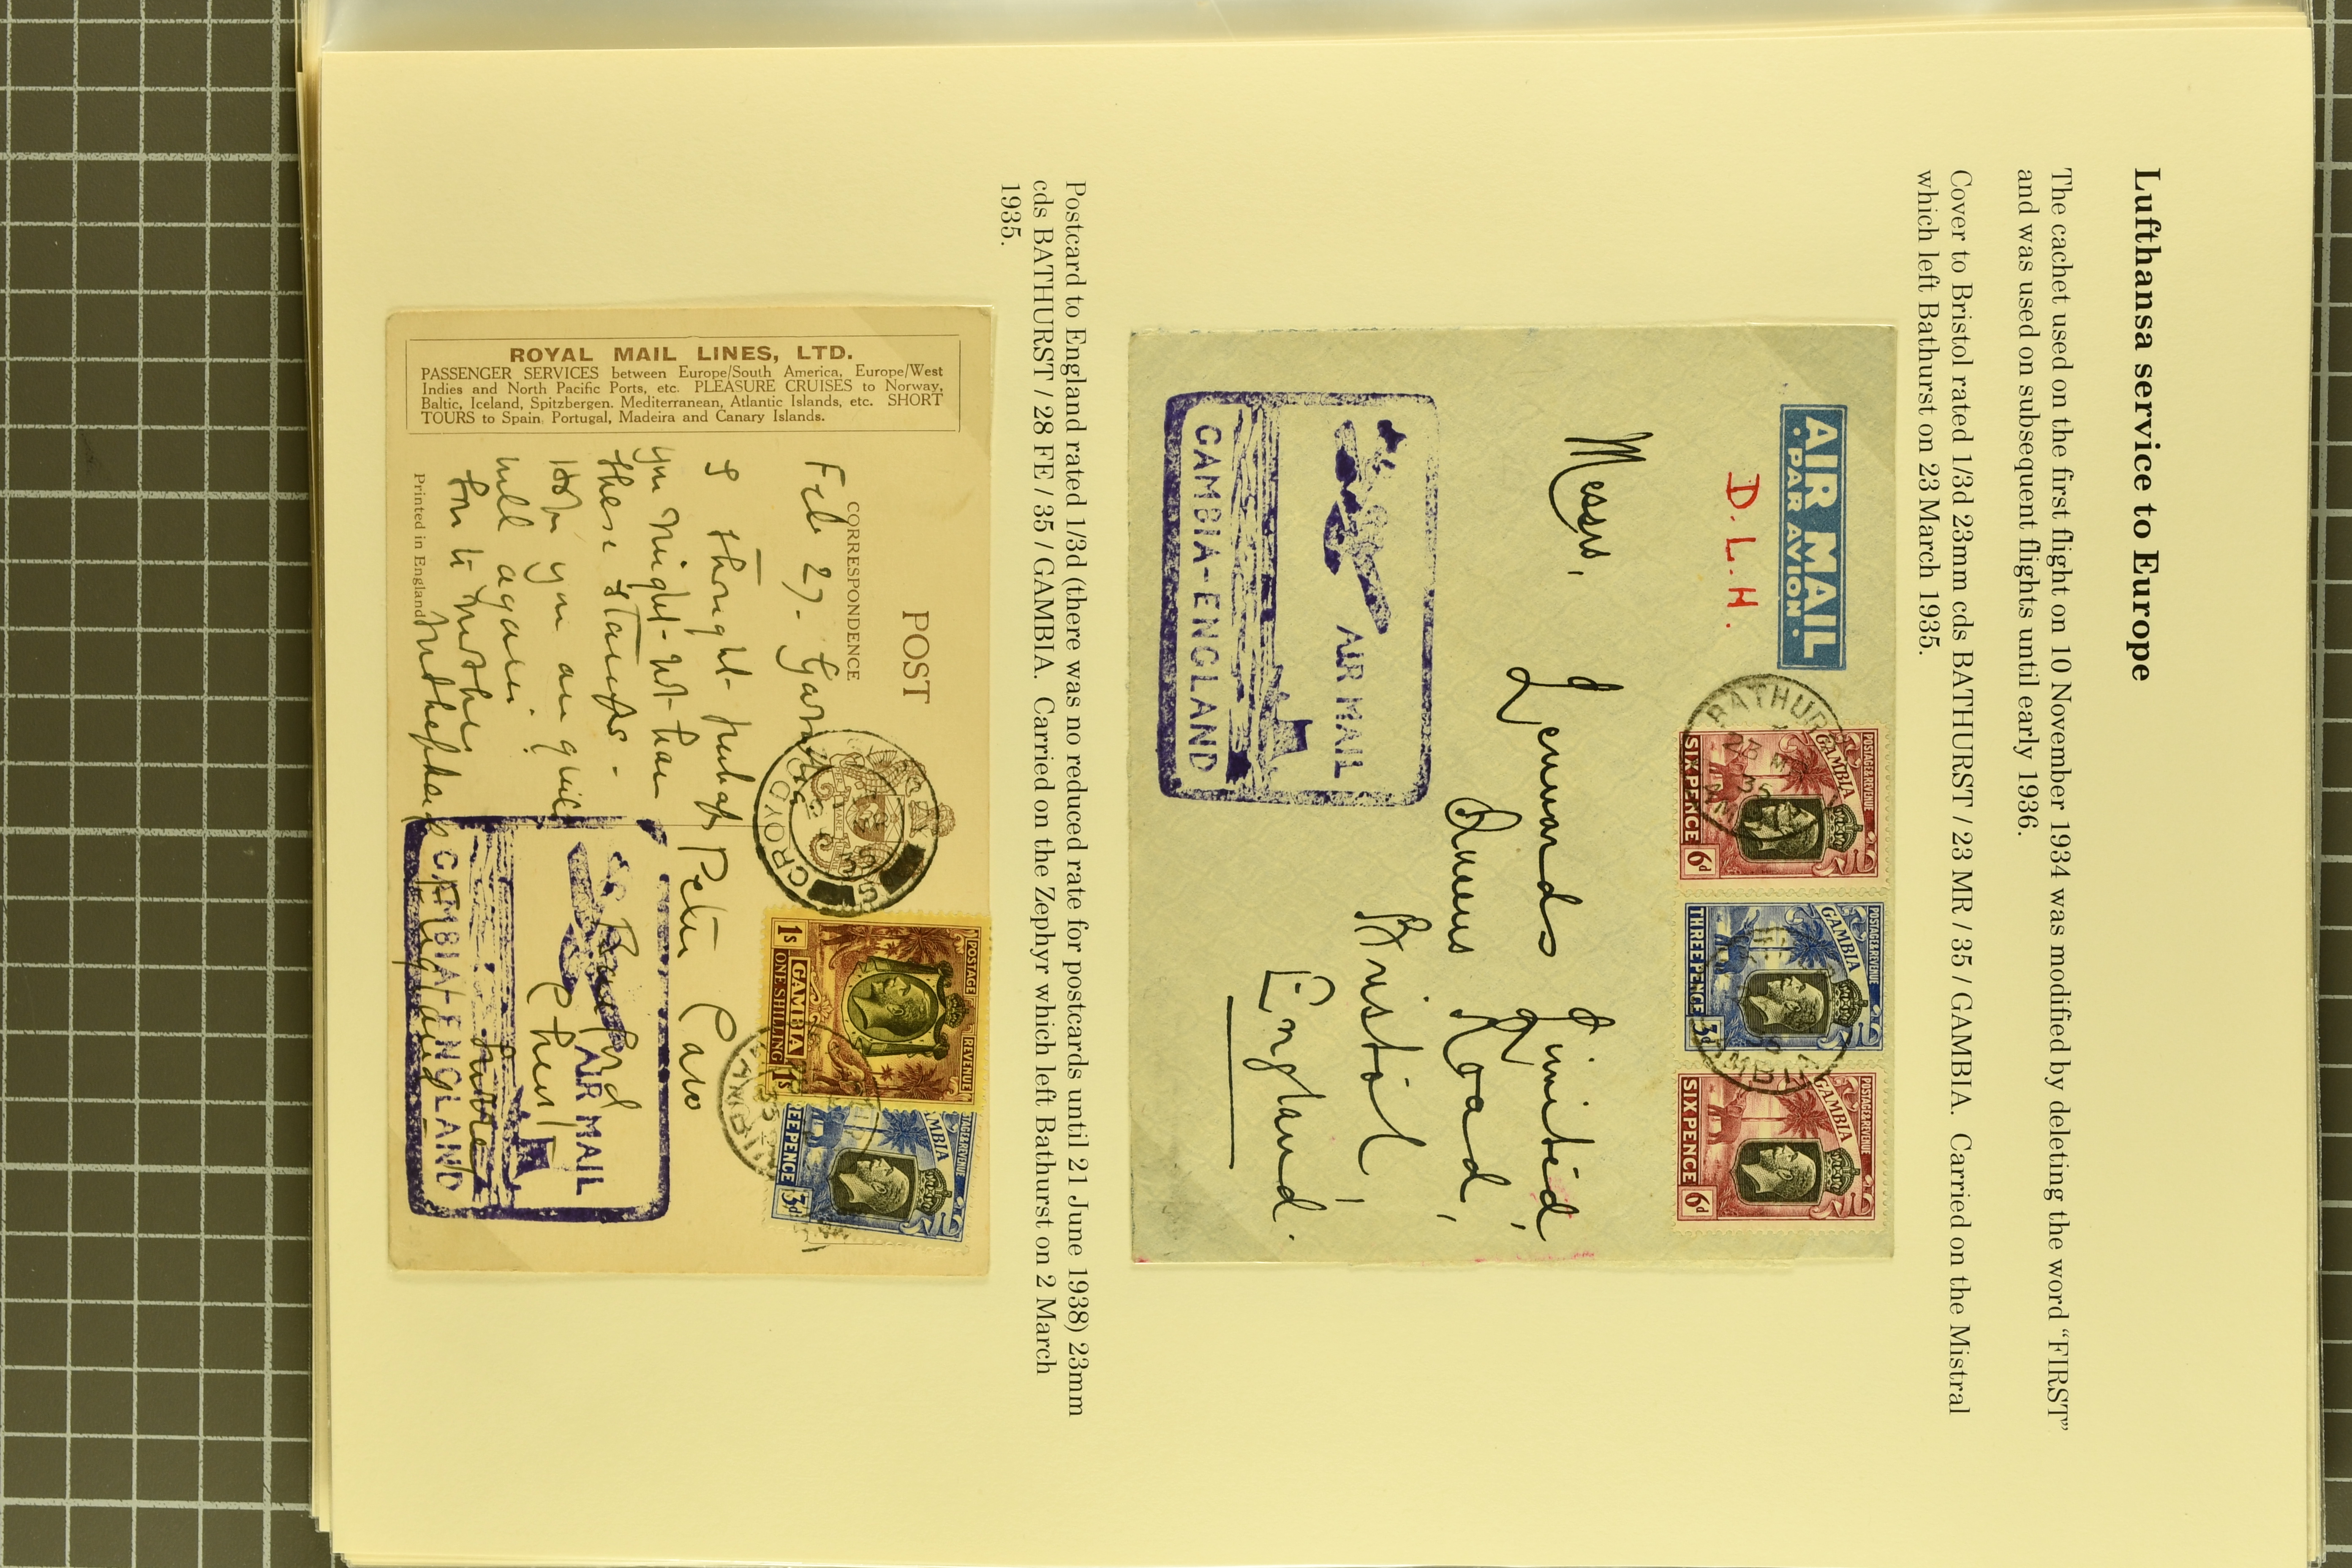 Lufthansa service to Europe
The cachet used on the first flight on 10 November 1934 was modified by deleting the word “FIRST”
and was used on subsequent flights until early 1936.
Cover to Bristol rated 1/3d 23mm cds BATHURST / 23 MR / 35 / GAMBIA. Carried on the Mistral
which left Bathurst on 23 March 1935.
AIR MAIL
·PAR AVION·
D.L.H.
BATHURST
23 MR
35
GAMBIA
POSTAGE & REVENUE
GAMBIA
SIX PENCE 6d
POSTAGE & REVENUE
GAMBIA
THREE PENCE 3d
POSTAGE & REVENUE
GAMBIA
SIX PENCE 6d
Messrs.
Lennards Limited,
Queens Road,
Bristol,
England.
AIR MAIL
GAMBIA-ENGLAND
Postcard to England rated 1/3d (there was no reduced rate for postcards until 21 June 1938) 23mm
cds BATHURST / 28 FE / 35 / GAMBIA. Carried on the Zephyr which left Bathurst on 2 March
1935.
POST
CORRESPONDENCE
ROYAL MAIL LINES, LTD.
PASSENGER SERVICES between Europe/South America, Europe/West
Indies and North Pacific Ports, etc. PLEASURE CRUISES to Norway,
Baltic, Iceland, Spitzbergen, Mediterranean, Atlantic Islands, etc. SHORT
TOURS to Spain, Portugal, Madeira and Canary Islands.
Printed in England
CROYDON
35
POSTAGE REVENUE
1s GAMBIA 1s
ONE SHILLING
POSTAGE & REVENUE
GAMBIA
THREE PENCE 3d
Feb 27. Gambia
I thought perhaps
you might not have
these stamps -
Hope you are quite
well again.
Peter
England
AIR MAIL
GAMBIA-ENGLAND